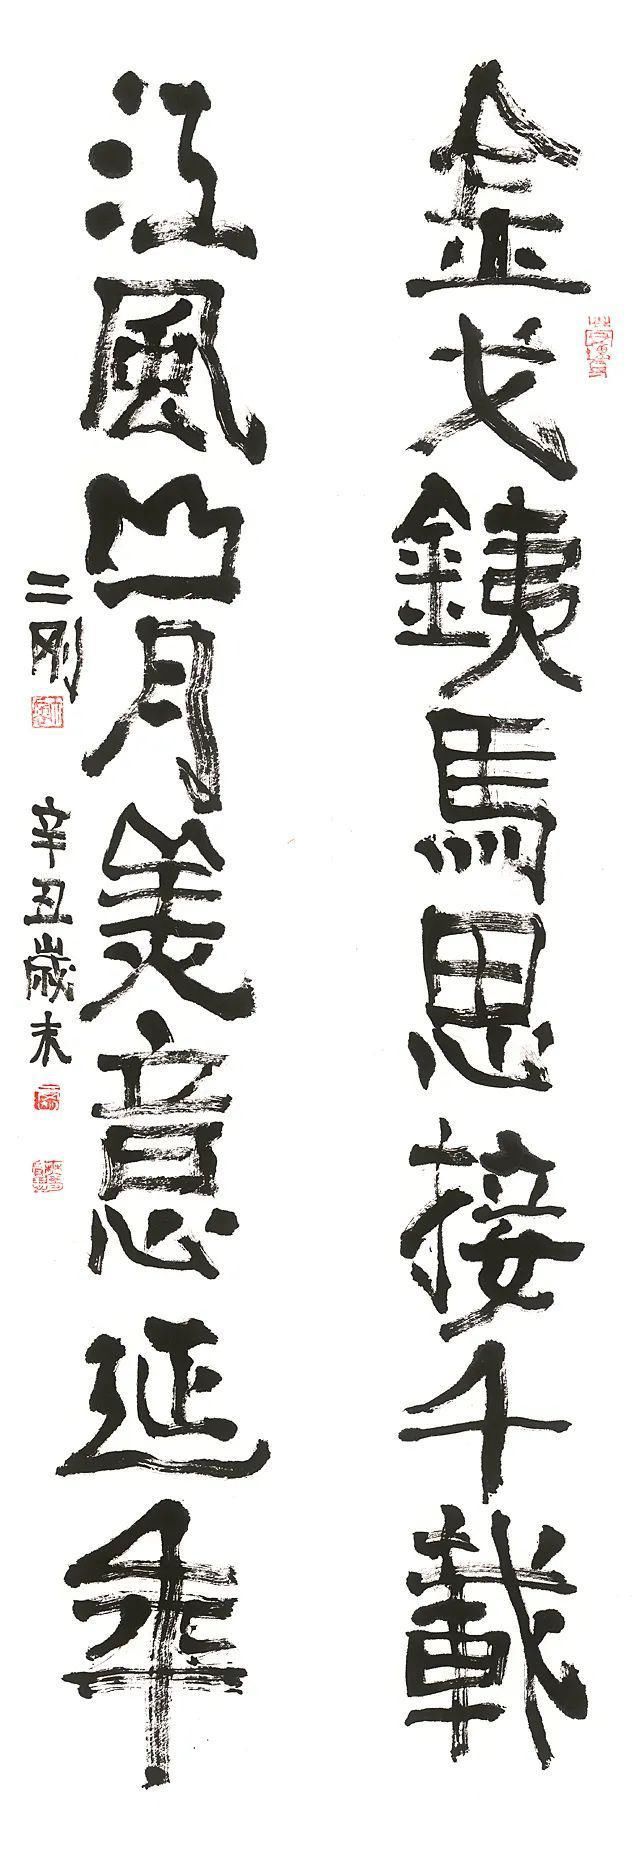 金戈銕馬思接千載
江風山月美意延年
二剛
辛丑歲末